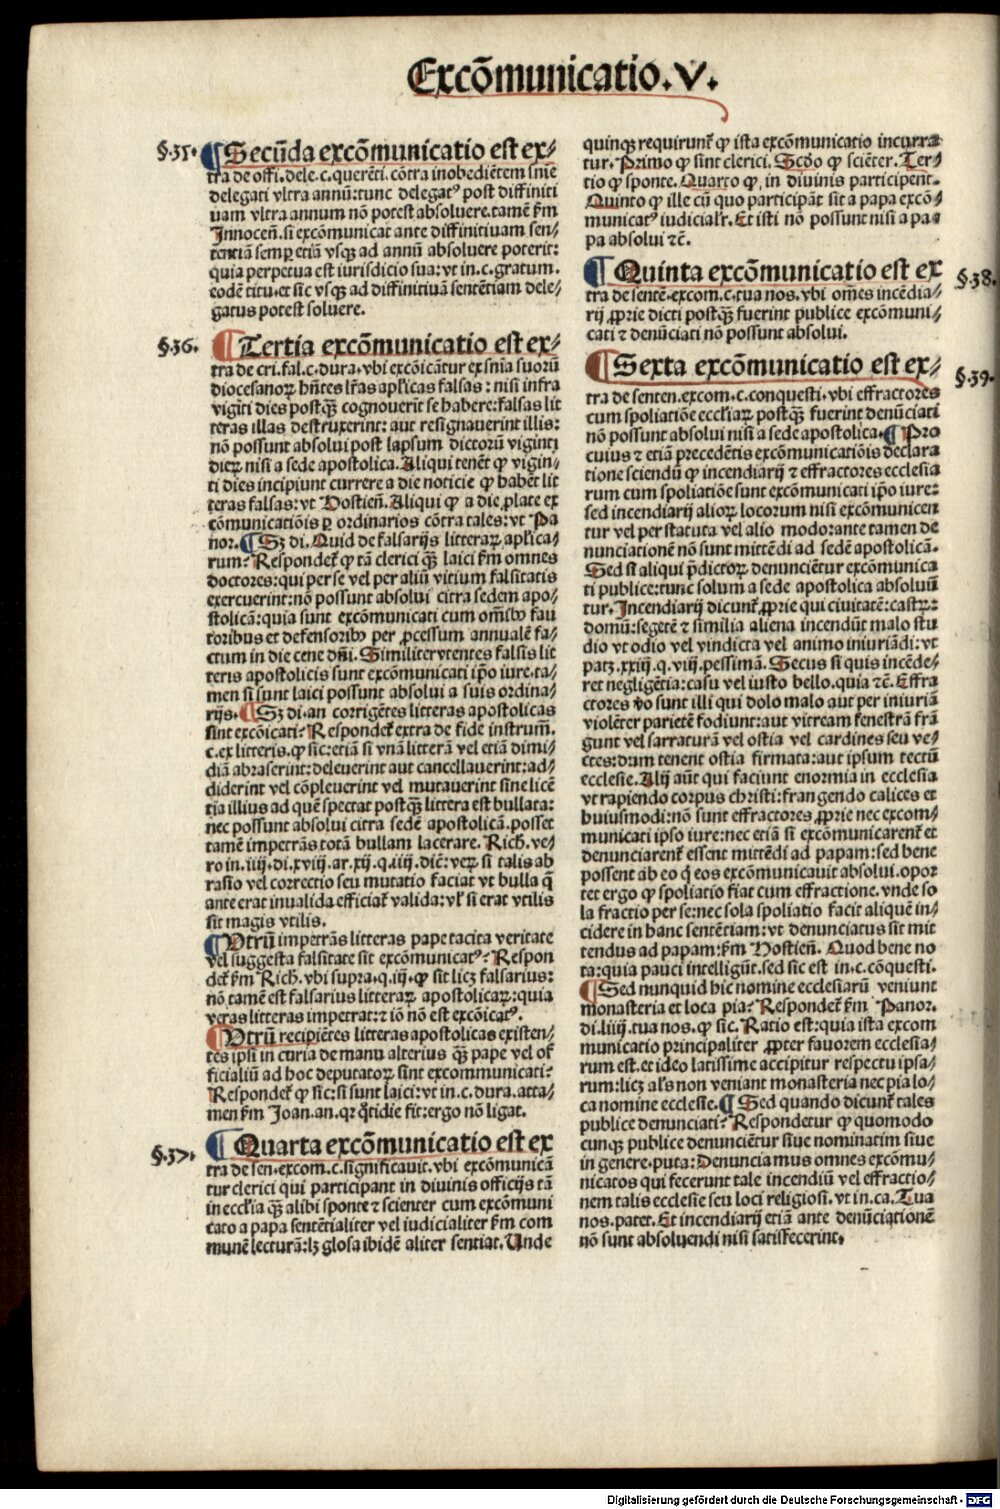 Excōmunicatio.V.
§.35.
¶Secūda excōmunicatio est ex⸗
tra de offi.dele.c.querēti.cōtra inobediētem snīe
delegati vltra annū:tunc delegatꝰ post diffiniti
uam vltra annum nō potest absoluere.tamē ẜm
Innocen̄.si excōmunicat ante diffinitiuam sen⸗
tentiā semꝑ etiā vsqꝫ ad annū absoluere poterit:
quia perpetua est iurisdicio sua:vt in.c.gratum.
eodē titu.et sic vsqꝫ ad diffinitiuā sentētiam dele⸗
gatus potest soluere.
§.36.
¶Tertia excōmunicatio est ex⸗
tra de cri.fal.c.dura.vbi excōicātur ex snīa suorū
diocesanoꝝ hn̄tes lr̄as apl'icas falsas: nisi infra
viginti dies postq̄ꝫ cognouerit se habere:falsas lit
teras illas destruxerint: aut resignauerint illis:
nō possunt absolui post lapsum dictorū viginti
dieꝝ nisi a sede apostolica.Aliqui tenēt ꝙ vigin⸗
ti dies incipiunt currere a die noticie ꝙ habēt lit
teras falsas:vt Hostien̄.Aliqui ꝙ a die ꝓlate ex
cōmunicatiōis ꝑ ordinarios cōtra tales:vt Pa
nor.¶Sꝫ di.Quid de falsarijs litteraꝝ apl'ica⸗
rum?Respondet᷑ ꝙ tā clerici q̄ꝫ laici ẜm omnes
doctores:qui per se vel per aliū vitium falsitatis
exercuerint:nō possunt absolui citra sedem apo⸗
stolicā:quia sunt excōmunicati cum om̄ibꝰ fau
toribus et defensoribꝰ per ꝓcessum annualē fa⸗
ctum in die cene dn̄i.Similiter vtentes falsis lit
teris apostolicis sunt excōmunicati ip̄o iure.ta⸗
men si sunt laici possunt absolui a suis ordina⸗
rijs.¶Sꝫ di.an corrigētes litteras apostolicas
sint excōicati?Respondet᷑ extra de fide instrum̄.
c.ex litteris.ꝙ sic:etiā si vnā litterā vel etiā dimi⸗
diā abraserint:deleuerint aut cancellauerint:ad⸗
diderint vel cōpleuerint vel mutauerint sine licē
tia illius ad quē spectat postq̄ꝫ littera est bullata:
nec possunt absolui citra sedē apostolicā.posset
tamē impetrās totā bullam lacerare.Rich.ve⸗
ro in.iiij.di.xviij.ar.xij.q.iiij.dic̄:veꝝ si talis ab
rasio vel correctio seu mutatio faciat vt bulla q̄
ante erat inualida efficiat᷑ valida:vl' si erat vtilis
sit magis vtilis.
¶Vtrū impetrās litteras pape tacita veritate
vel suggesta falsitate sit excōmunicatꝰ?Respon
det᷑ ẜm Rich.vbi supra.q.iij.ꝙ sit licꝫ falsarius:
nō tamē est falsarius litteraꝝ apostolicaꝝ:quia
veras litteras impetrat:ꝫ iō nō est excōicatꝰ.
¶Vtrū recipiētes litteras apostolicas existen⸗
tes ipsi in curia de manu alterius q̄ꝫ pape vel of
ficialiū ad hoc deputatoꝝ sint excommunicati?
Respondet᷑ ꝙ sic:si sunt laici:vt in.c.dura.atta⸗
men ẜm Joan.an.qꝛ q̄tidie fit:ergo nō ligat.
§.37.
¶Quarta excōmunicatio est ex
tra de sen.excom.c.significauit.vbi excōmunicā
tur clerici qui participant in diuinis officijs tā
in eccl'ia q̄ꝫ alibi sponte ⁊ scienter cum excōmuni
cato a papa sentētialiter vel iudicialiter ẜm com
munē lecturā:lꝫ glosa ibidē aliter sentiat.Unde
quinqꝫ requirunt᷑ ꝙ ista excōmunicatio incurra
tur.Primo ꝙ sint clerici.Scd̄o ꝙ sciēter.Ter⸗
tio ꝙ sponte.Quarto ꝙ,in diuinis participent.
Quinto ꝙ ille cū quo participāt sit a papa excō⸗
municatꝰ iudicialr̄.Et isti nō possunt nisi a pa⸗
pa absolui ⁊c̄.
§.38.
¶Quinta excōmunicatio est ex
tra de sentē.excom.c.tua nos.vbi om̄es incēdia⸗
rij ꝓprie dicti postq̄ꝫ fuerint publice excōmuni⸗
cati ⁊ denūciati nō possunt absolui.
§.39.
¶Sexta excōmunicatio est ex⸗
tra de senten.excom.c.conquesti.vbi effractores
cum spoliatiōe eccl'iaꝝ postq̄ꝫ fuerint denūciati
nō possunt absolui nisi a sede apostolica.¶Pro
cuius ⁊ etiā precedētis excōmunicatiōis declara
tione sciendū ꝙ incendiarij ⁊ effractores ecclesia
rum cum spoliatiōe sunt excōmunicati ip̄o iure:
sed incendiarij alioꝝ locorum nisi excōmunicen
tur vel per statuta vel alio modo:ante tamen de
nunciationē nō sunt mittēdi ad sedē apostolicā.
Sed si aliqui p̄dictoꝝ denuncientur excōmunica
ti publice:tunc solum a sede apostolica absoluū
tur.Incendiarij dicunt᷑ ꝓprie qui ciuitatē:castꝝ:
domū:segetē ⁊ similia aliena incendūt malo stu
dio vt odio vel vindicta vel animo iniuriādi:vt
patꝫ.xxiij.q.viij.pessimā.Secus si quis incēde⸗
ret negligētia:casu vel iusto bello.quia ⁊c̄.Effra
ctores v̄o sunt illi qui dolo malo aut per iniuriā
violēter parietē fodiunt:aut vitream fenestrā frā
gunt vel sarraturā vel ostia vel cardines seu ve⸗
ctes:dum tenent ostia firmata:aut ipsum tectū
ecclesie.Alij aūt qui faciunt enormia in ecclesia
vt rapiendo corpus christi:frangendo calices et
huiusmodi:nō sunt effractores ꝓprie nec excom⸗
municati ipso iure:nec etiā si excōmunicarent᷑ et
denunciarent᷑ essent mittēdi ad papam:sed bene
possent ab eo q̇ eos excōmunicauit absolui.opor
tet ergo ꝙ spoliatio fiat cum effractione.vnde so
la fractio per se:nec sola spoliatio facit aliquē in⸗
cidere in hanc sentētiam:vt denunciatus sit mit
tendus ad papam:ẜm Hostien̄.Quod bene no
ta:quia pauci intelligūt.sed sic est in.c.cōquesti.
¶Sed nunquid hic nomine ecclesiarū veniunt
monasteria et loca pia?Respondet᷑ ẜm Panor.
di.liiij.tua nos.ꝙ sic.Ratio est:quia ista excom
municatio principaliter ꝓpter fauorem ecclesia⸗
rum est.et ideo latissime accipitur respectu ipsa⸗
rum:licꝫ al's non veniant monasteria nec pia lo⸗
ca nomine ecclesie.¶Sed quando dicunt᷑ tales
publice denunciati?Respondetur ꝙ quomodo
cunqꝫ publice denuncientur siue nominatim siue
in genere.puta:Denunciamus omnes excōmu⸗
nicatos qui fecerunt tale incendiū vel effractio⸗
nem talis ecclesie seu loci religiosi.vt in.ca.Tua
nos.patet.Et incendiarij etiā ante denūciationē
nō sunt absoluendi nisi satisfecerint.
Digitalisierung gefördert durch die Deutsche Forschungsgemeinschaft - DFG